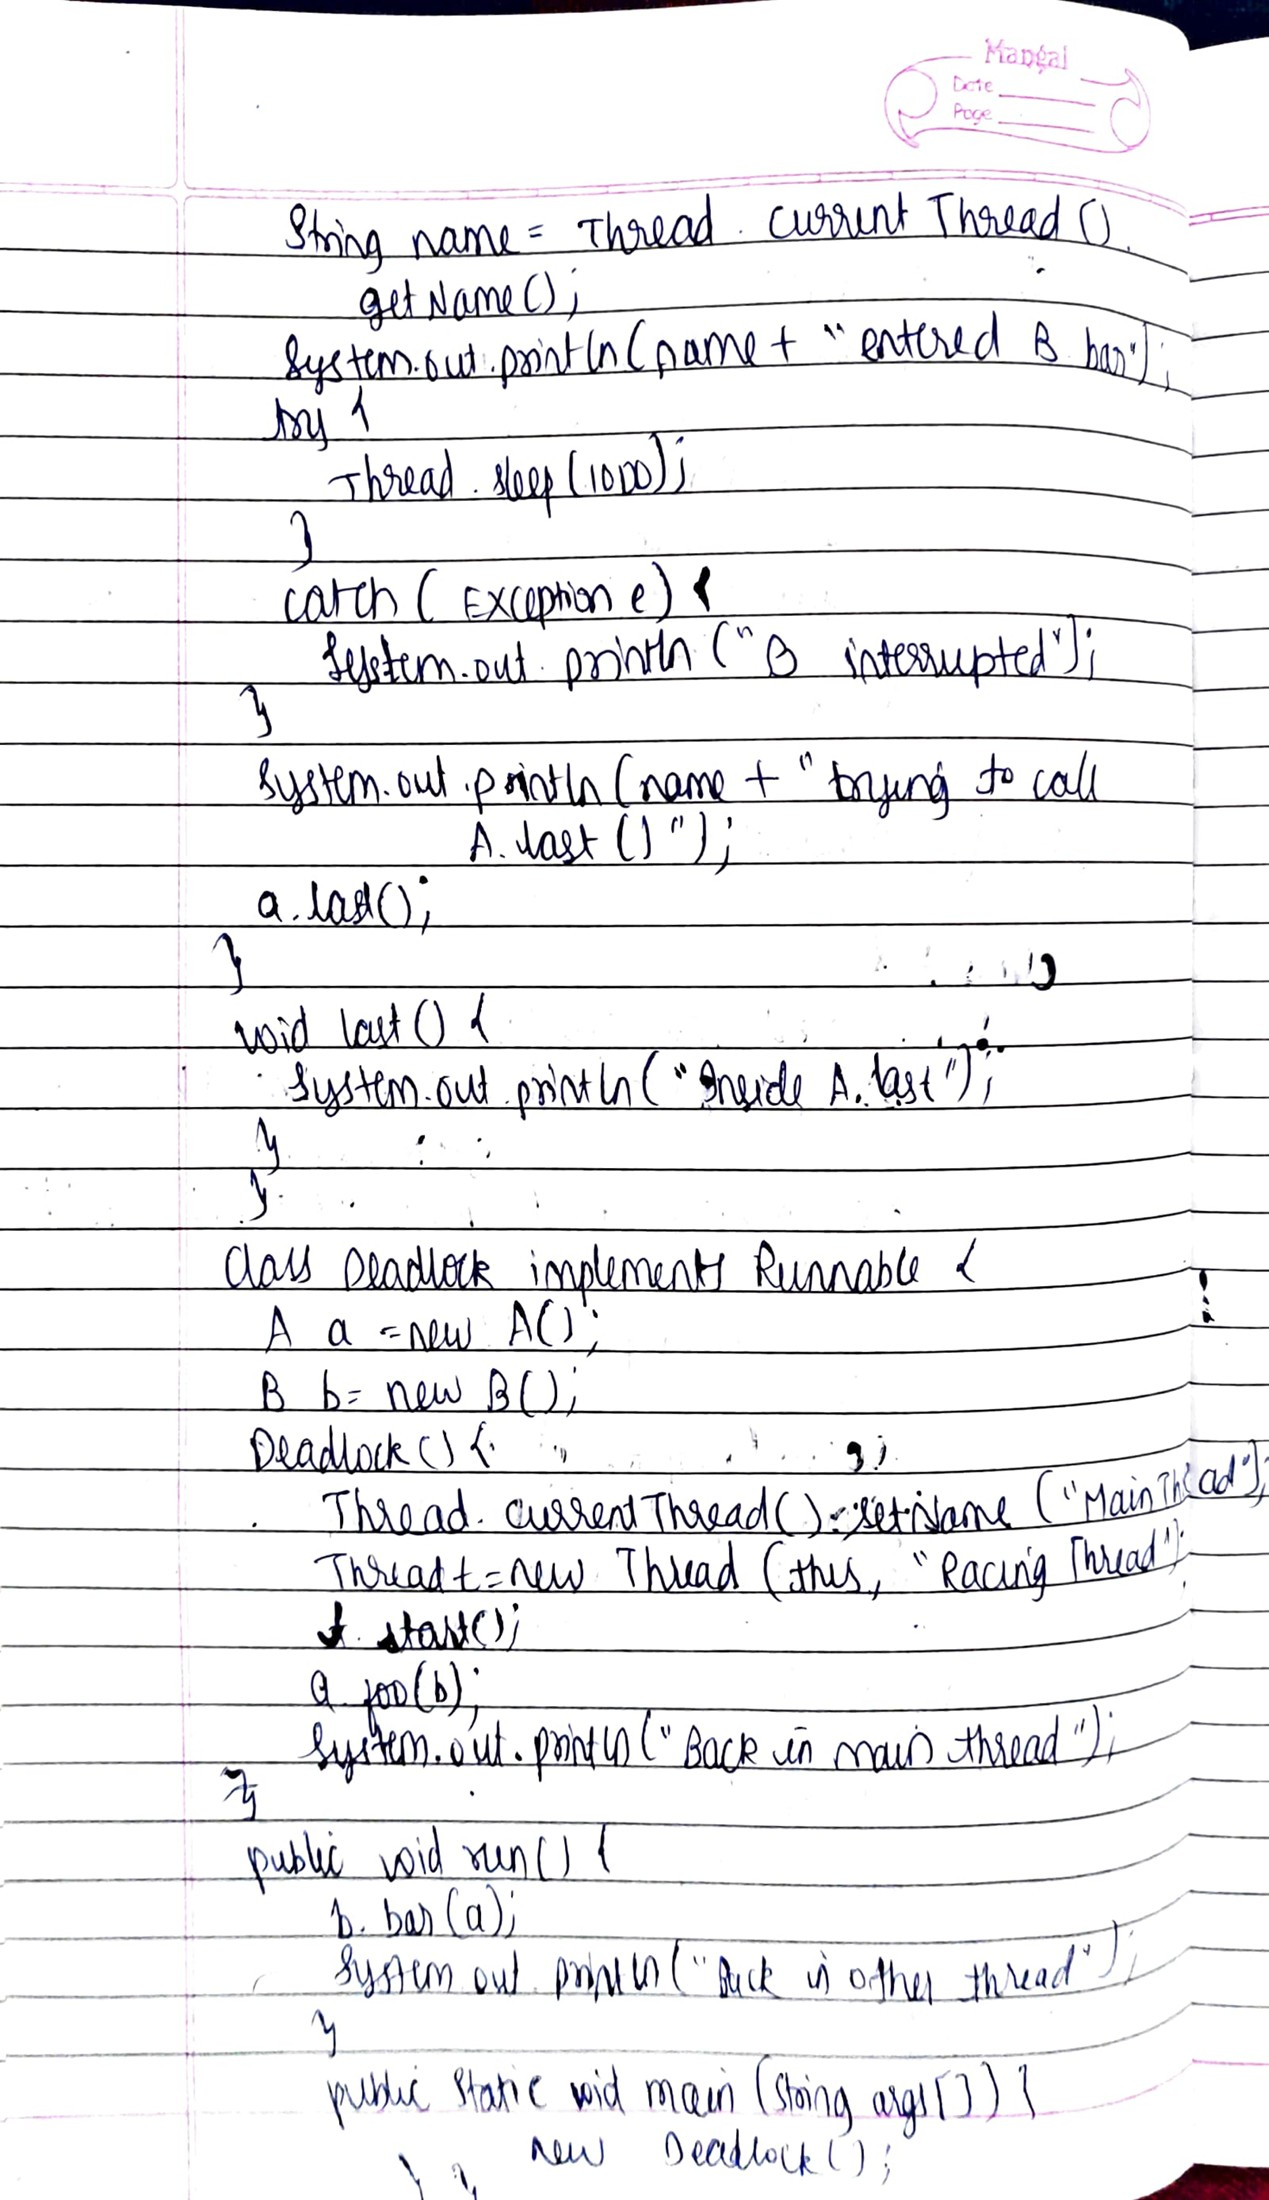 Mangal
Date
Page
String name = Thread . current Thread ().
getName();
System.out.println(name + "entered B. bar");
try {
Thread . sleep (1000);
}
catch ( Exception e) {
System.out. println ("B interrupted");
}
System.out.println (name + "trying to call
A. last () ");
a. last();
}
void last () {
System.out.println ("Inside A. last");
}
}
Class Deadlock implements Runnable {
A a = new A();
B b = new B();
Deadlock () {
Thread. currentThread().setName ("MainThread");
Thread t = new Thread (this, "Racing Thread");
t. start();
a. foo(b);
System.out.println("Back in main thread");
}
public void run() {
b. bar (a);
System out println ("Back in other thread");
}
public static void main (String args[]) {
new Deadlock ();
} }